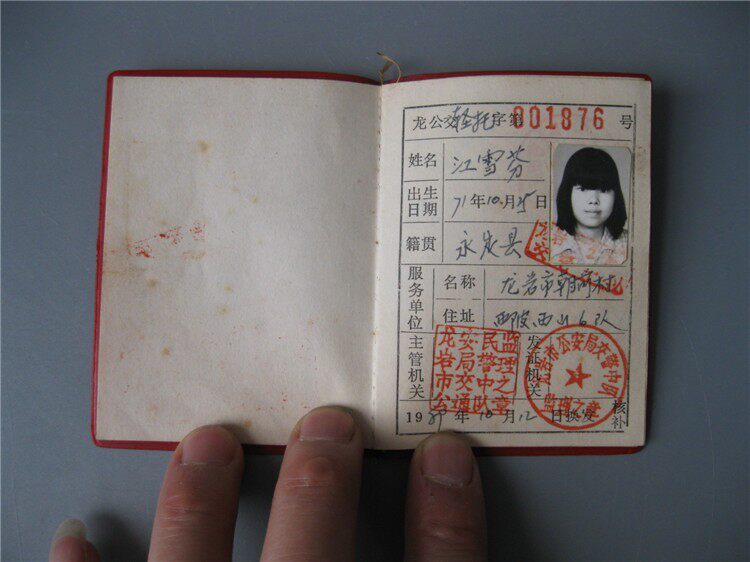 龙公交轻托字第 001876 号
姓名 江雪芬
出生日期 71年10月25日
籍贯 永定县
服务单位 名称 龙岩市 村
住址 西山6队
主管机关 龙岩市公安局交通民警中队监理之章
发证机关 龙岩市公安局交警中队 监理之章
1989年10月12日换发 核补